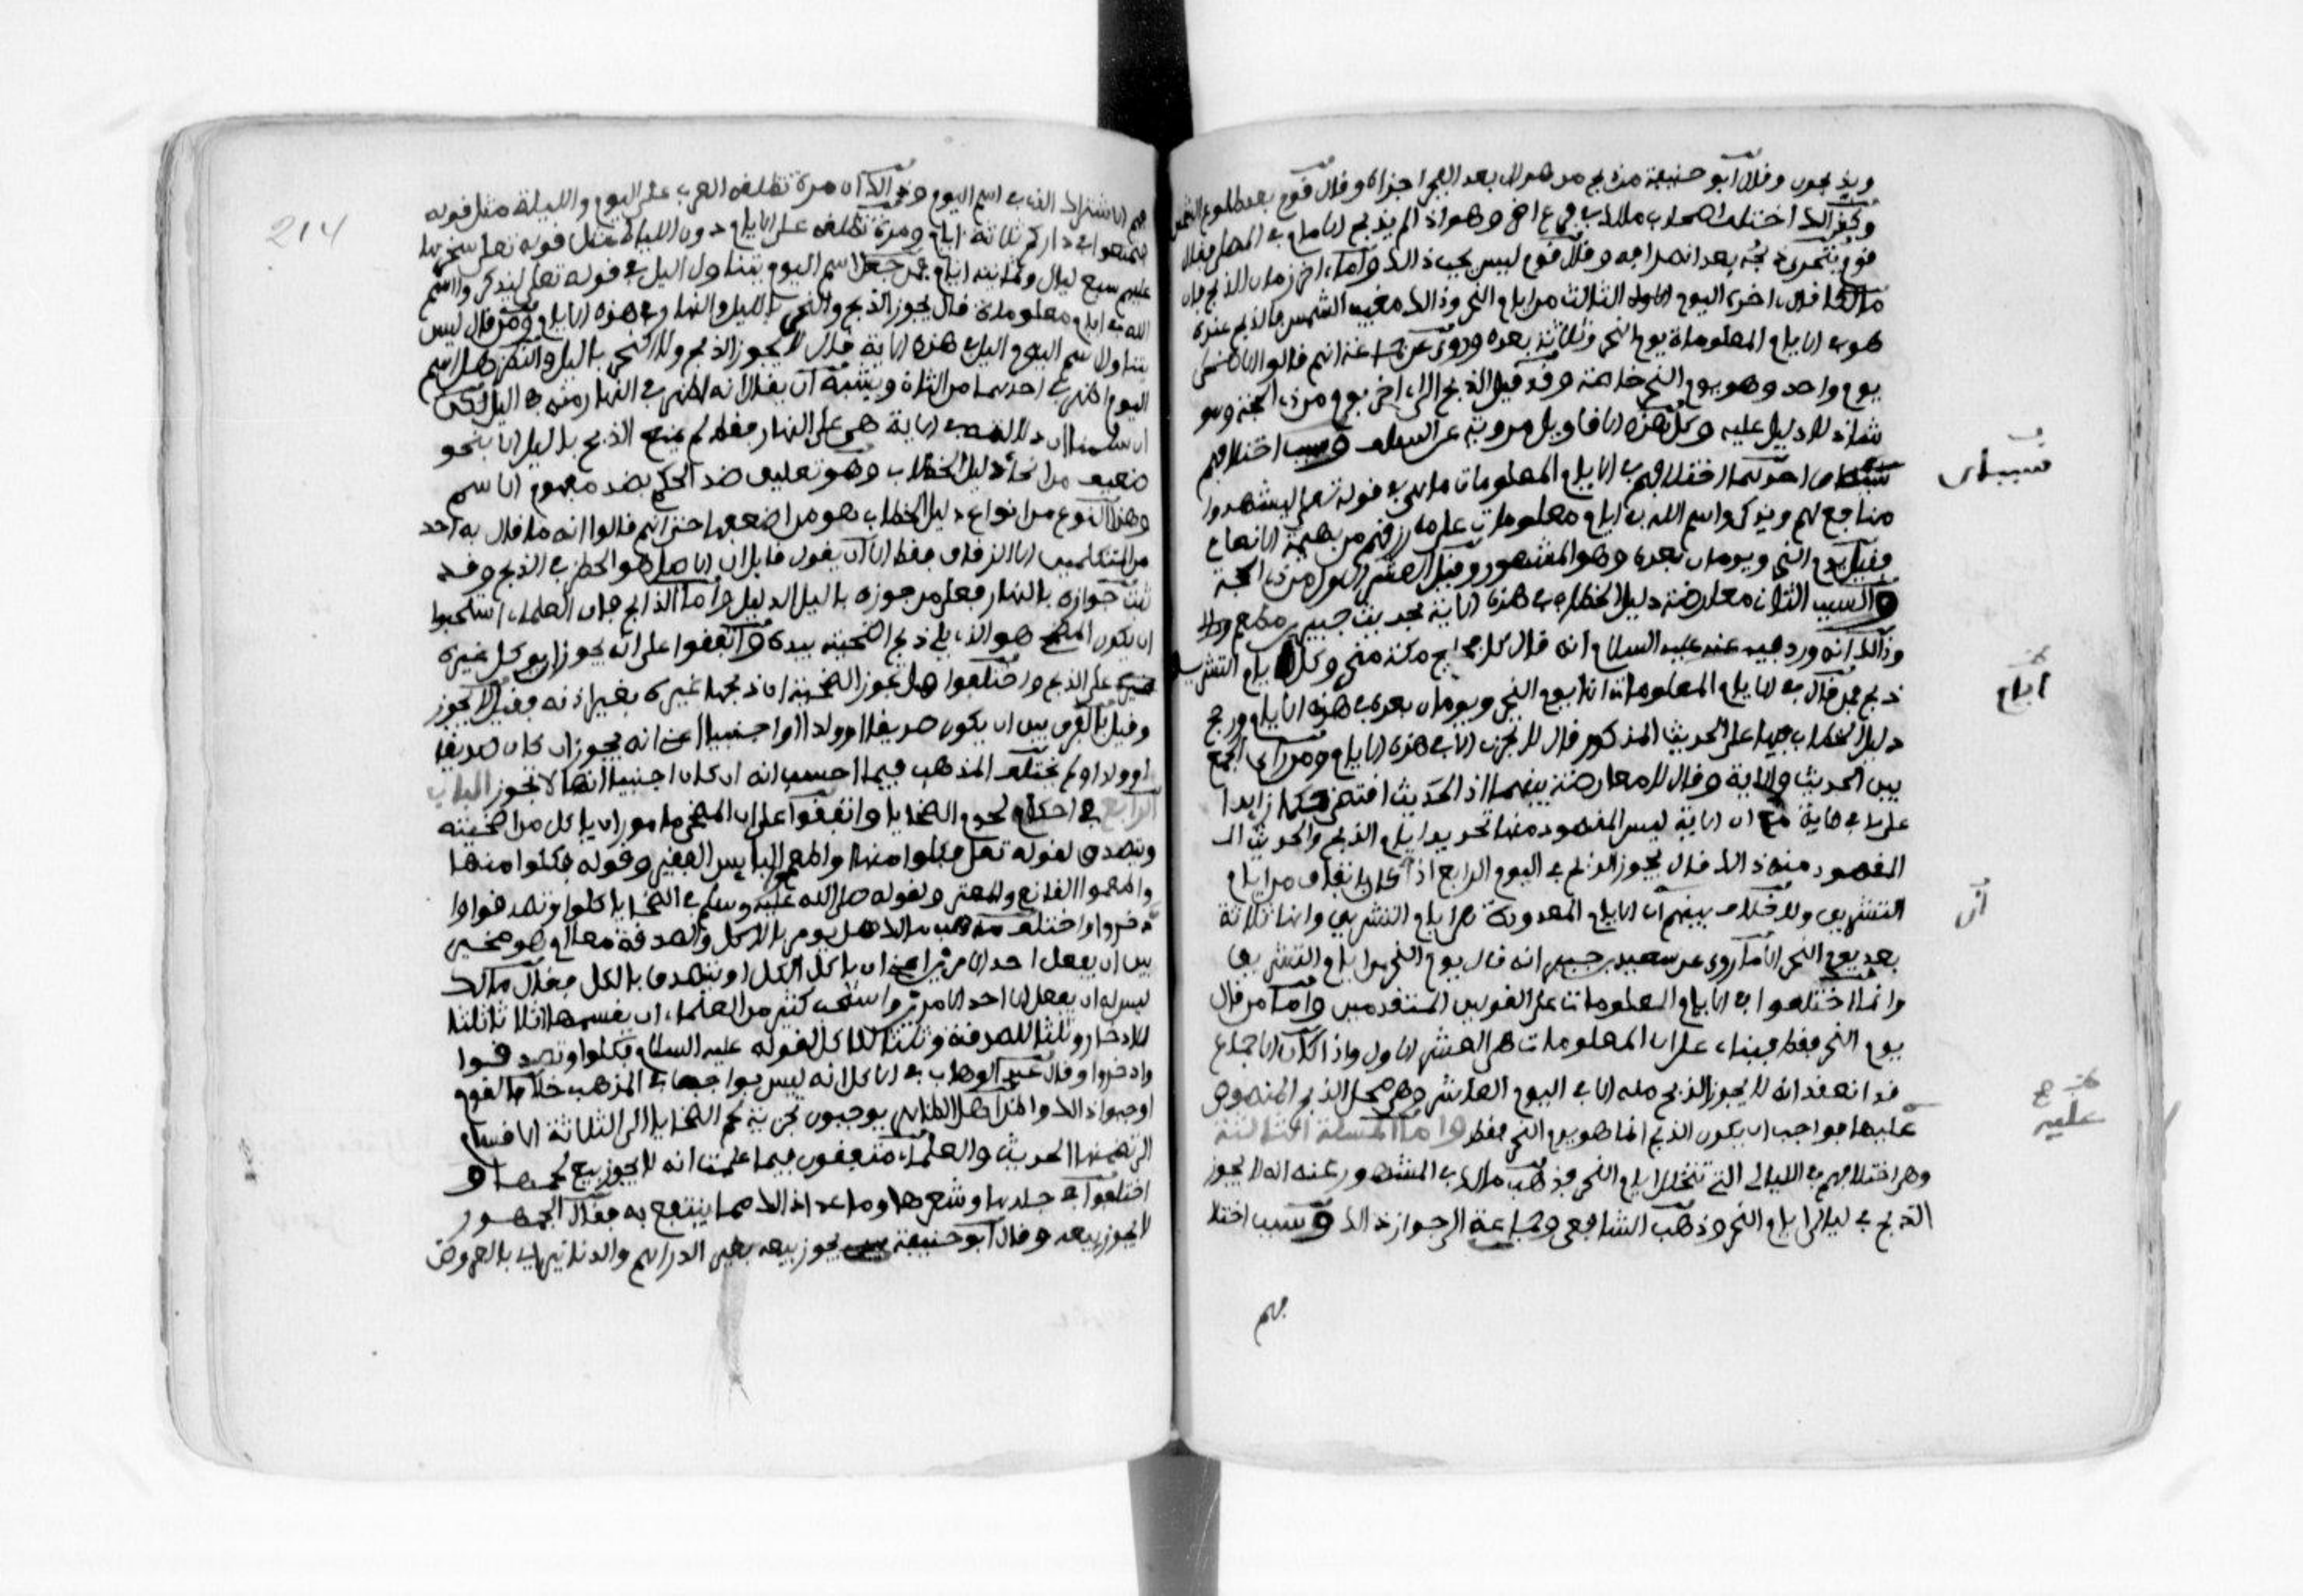 ويذبحون وقال أبو حنيفة من ذبح من هؤلاء بعد الفجر اجزاه وقال قوم بعد طلوع الشمس
وكذالك اختلف اصحاب مالك في فرع اخر وهو اذا لم يذبح الامام في المصلى فقال
قوم يتحرى ذبحه بعد انصرافه وقال قوم ليس يجب ذالك وأما اخر زمان الذبح فان
مالكا قال اخره اليوم الثالث من ايام النحر وذالك مغيب الشمس فالذبح عنده
هو في الايام المعلومات يوم النحر وثلاثة بعده وروي عن جماعة انهم قالوا الاضحى
يوم واحد وهو يوم النحر خاصة وقد قيل الذبح الى اخر يوم من ذي الحجة وهو
شاذ لا دليل عليه وكل هذه الاقاويل مروية عن السلف وسبب اختلافهم
شيئان احدهما اختلافهم في الايام المعلومات ما هي في قوله تعلى ليشهدوا
منافع لهم ويذكروا اسم الله في ايام معلومات على ما رزقهم من بهيمة الانعام
فقيل يوم النحر ويومان بعده وهو المشهور وقيل العشر الاول من ذي الحجة
والسبب الثاني معارضة دليل الخطاب في هذه الاية بحديث جبير بن مطعم
وذالك انه ورد فيه عنه عليه السلام انه قال كل فجاج مكة منحر وكل ايام التشريق
ذبح فمن قال في الايام المعلومات انها يوم النحر ويومان بعده في هذه الايام ورجح
دليل الخطاب فيها على الحديث المذكور قال لا نحر الا في هذه الايام ومن رأى الجمع
بين الحديث والاية وقال لا معارضة بينهما اذ الحديث اقتضى حكما زايدا
على ما في الاية مع ان الاية ليس المقصود منها تحديد ايام الذبح والحديث الـ
المقصود منه ذالك قال يجوز الذبح في اليوم الرابع اذ كان باتفاق من ايام
التشريق ولا خلاف بينهم أن الايام المعدودة هي ايام التشريق وانها ثلاثة
بعد يوم النحر الا ما روي عن سعيد بن جبير انه قال يوم النحر من ايام التشريق
وانما اختلفوا في الايام المعلومات على القولين المتقدمين وأما من قال
يوم النحر فقط فبناء على ان المعلومات هي العشر الاول واذا كان الاجماع
قد انعقد انه لا يجوز الذبح منه الا في اليوم العاشر وهي محل الذبح المنصوص
عليها فواجب ان يكون الذبح انما هو يوم النحر فقط وأما المسئلة الثالثة
وهي اختلافهم في الليالي التي تتخلل ايام النحر فذهب مالك في المشهور عنه انه لا يجوز
الذبح في ليالي ايام النحر وذهب الشافعي وجماعة الى جواز ذالك وسبب اختلا
فهم
شيئان
ايام
أن
عليه
214
فهم الاشتراك الذي في اسم اليوم وذالك ان مرة تطلقه العرب على اليوم والليلة مثل قوله
فتمتعوا في داركم ثلاثة ايام ومرة تطلقه على الايام دون الليالي مثل قوله تعلى سخرها
عليهم سبع ليال وثمانية ايام فمن جعل اسم اليوم يتناول اليل في قوله تعلى ليذكروا اسم
الله في ايام معلومات قال يجوز الذبح والنحر بالليل والنهار في هذه الايام ومن قال ليس
يتناول اسم اليوم اليل في هذه الاية قال لا يجوز الذبح ولا النحر باليل والنظر هل اسم
اليوم اظهر في احدهما من الثاني ويشبه أن يقال انه اظهر في النهار منه في اليل لكن
ان سلمنا ان دلالته في الاية هي على النهار فقط لم يمنع الذبح باليل الا بنحو
ضعيف من انحاء دليل الخطاب وهو تعليق ضد الحكم بضد مفهوم الاسم
وهذا النوع من انواع دليل الخطاب هو من اضعفها حتى انهم قالوا انه ما قال به احد
من المتكلمين الا الدقاق فقط الا أن يقول قايل ان الاصل هو الحظر في الذبح وقد
ثبت جوازه بالنهار فعلى من جوزه باليل الدليل وأما الذابح فان العلماء استحبوا
ان يكون المضحي هو الذي يلي ذبح اضحيته بيده واتفقوا على انه يجوز ان يوكل غيره
على الذبح واختلفوا هل تجوز الضحية ان ذبحها غيره بغير اذنه فقيل لا يجوز
وقيل بالفرق بين ان يكون صديقا او ولدا او اجنبيا اعني انه يجوز ان كان صديقا
او ولدا ولم يختلف المذهب فيما احسب انه ان كان اجنبيا انها لا تجوز الباب
الرابع في احكام لحوم الضحايا واتفقوا على ان المضحي مامور ان ياكل من اضحيته
ويتصدق لقوله تعلى فكلوا منها واطعموا البايس الفقير وقوله فكلوا منها
واطعموا القانع والمعتر ولقوله صلى الله عليه وسلم في الضحايا كلوا وتصدقوا وا
دخروا واختلف مذهب مالك هل يومر بالاكل والصدقة معا ام هو مخير
بين ان يفعل احد الامرين اعني ان ياكل الكل او يتصدق بالكل فقال مالك
ليس له ان يفعل الا احد الامرين واستحب كثير من العلماء ان يقسمها اثلاثا ثلثا
للادخار وثلثا للصدقة وثلثا للاكل لقوله عليه السلام فكلوا وتصدقوا
وادخروا وقال عبد الوهاب في الاكل انه ليس بواجب في المذهب خلافا لقوم
اوجبوا ذالك واظن اهل الظاهر يوجبون تجزية لحم الضحايا الى الثلاثة الاقسام
التي تضمنها الحديث والعلماء متفقون فيما علمت انه لا يجوز بيع لحمها و
اختلفوا في جلدها وشعرها وما عدا ذالك مما ينتفع به فقال الجمهور
لا يجوز بيعه وقال أبو حنيفة يجوز بيعه بغير الدراهم والدنانير اي بالعروض